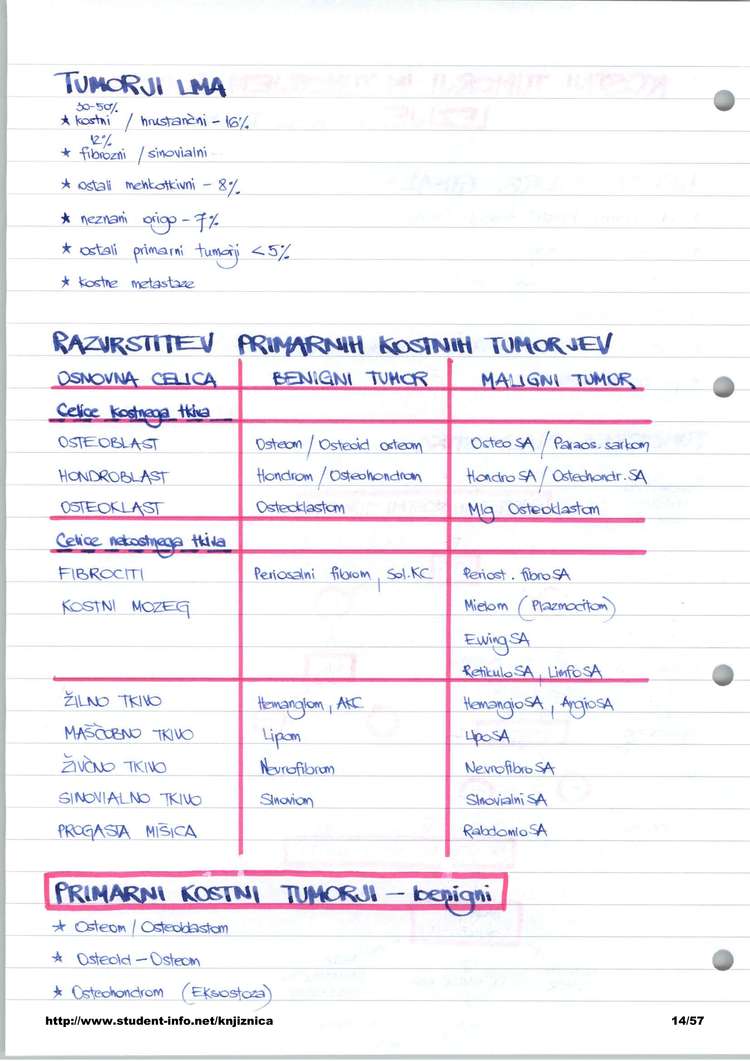 TUMORJI LMA
30-50%
★ kostni / hrustančni - 16%
12%
★ fibrozni / sinovialni
★ ostali mehkotkivni - 8%
★ neznani origo - 7%
★ ostali primarni tumorji < 5%
★ kostne metastaze
RAZVRSTITEV PRIMARNIH KOSTNIH TUMORJEV
OSNOVNA CELICA BENIGNI TUMOR MALIGNI TUMOR
Celice kostnega tkiva
OSTEOBLAST Osteom / Osteoid osteom Osteo SA / Paraos. sarkom
HONDROBLAST Hondrom / Osteohondrom Hondro SA / Osteohondr. SA
OSTEOKLAST Osteoklastom Mlg Osteoklastom
Celice nekostnega tkiva
FIBROCITI Periosalni fibrom, Sol. KC Periost. fibro SA
KOSTNI MOZEG Mielom (Plazmocitom)
Ewing SA
Retikulo SA, Limfo SA
ŽILNO TKIVO Hemangiom, AKC Hemangio SA, Angio SA
MAŠČOBNO TKIVO Lipom Lipo SA
ŽIVČNO TKIVO Nevrofibrom Nevrofibro SA
SINOVIALNO TKIVO Sinoviom Sinovialni SA
PROGASTA MIŠICA Rabdomio SA
PRIMARNI KOSTNI TUMORJI - benigni
★ Osteom / Osteoblastom
★ Osteoid - Osteom
★ Osteohondrom (Eksostoza)
http://www.student-info.net/knjiznica 14/57